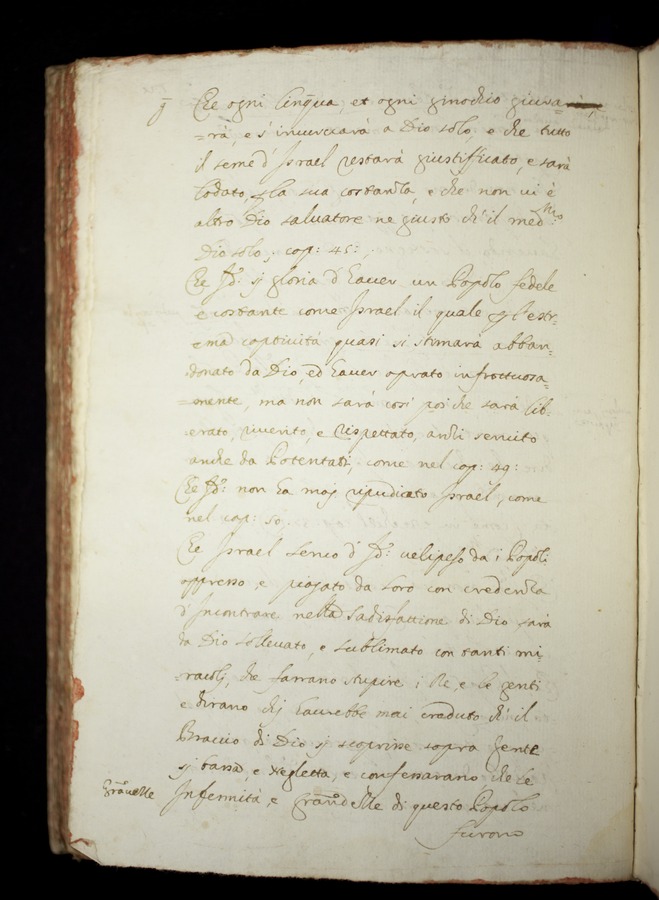 Che ogni lingua, et ogni ginochio giura=
=rà, e s'incurvarà a Dio solo, e che tutto
il seme d'Israel restarà giustifficato, e sarà
lodato, p la sua costanza, e che non vi è
altro Dio salvatore ne giusto ch'il medmo
Dio solo, cap: 45:
Che Id: si gloria d'haver un Popolo fedele
e costante come Israel il quale p l'estr=
=ema captività quasi si stimarà abban=
donato da Dio, ed haver oprato infrottuosa=
=mente, ma non sarà così poi che sarà lib=
=erato, riverito, e rispettato, anzi servito
anche da Potentati, come nel cap: 49:
Che Id: non ha maj ripudiato Israel, come
nel cap: 50.
Che Israel servo d'Id: velipeso da i Popoli
oppresso, e piagato da loro con credenza
d'Incontrare nella Sadisfattione di Dio sarà
da Dio sollevato, e sublimato con tanti mi=
=racolj, che farrano stupire i Re, e le genti
e dirano chj haverebbe mai creduto ch'il
Braccio di Dio si scoprisse sopra gente
sj bassa, e negletta, e confessarano che le
gravezze Infermità, e grandezze di questo Popolo
furono